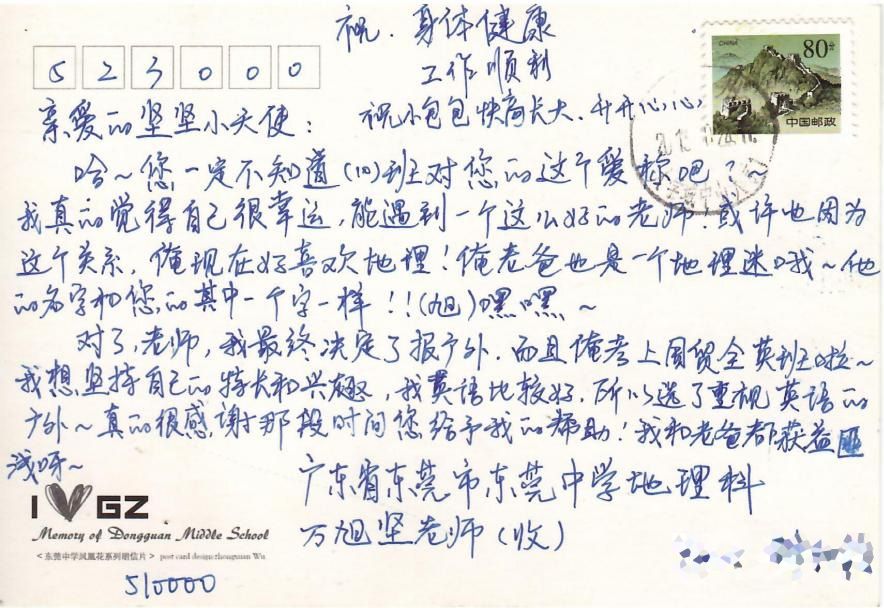 祝.身体健康
工作顺利
523000
CHINA
80分
中国邮政
亲爱的坚坚小天使:
祝小包包快高长大.开开心心
哈~您一定不知道(10)班对您的这个爱称吧?~
我真的觉得自己很幸运,能遇到一个这么好的老师.或许也因为
这个关系,俺现在好喜欢地理!俺老爸也是一个地理迷哦~他
的名字和您的其中一个字一样!!(旭)嘿嘿~
对了,老师,我最终决定了报广外.而且俺考上国贸全英班啦~
我想坚持自己的特长和兴趣,我英语比较好.所以选了重视英语的
广外~真的很感谢那段时间您给予我的帮助!我和老爸都获益匪
浅呀~
广东省东莞市东莞中学地理科
万旭坚老师(收)
I GZ
Memory of Dongguan Middle School
<东莞中学凤凰花系列明信片> post card design:zhongguan Wu
510000